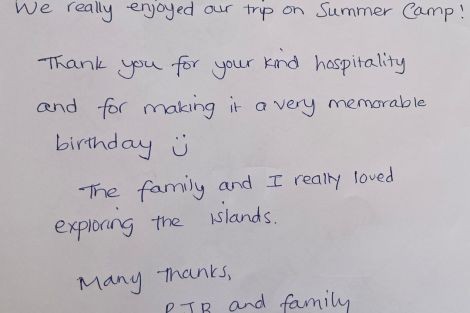 We really enjoyed our trip on Summer Camp!
Thank you for your kind hospitality
and for making it a very memorable
birthday
The family and I really loved
exploring the islands.
Many thanks,
and family